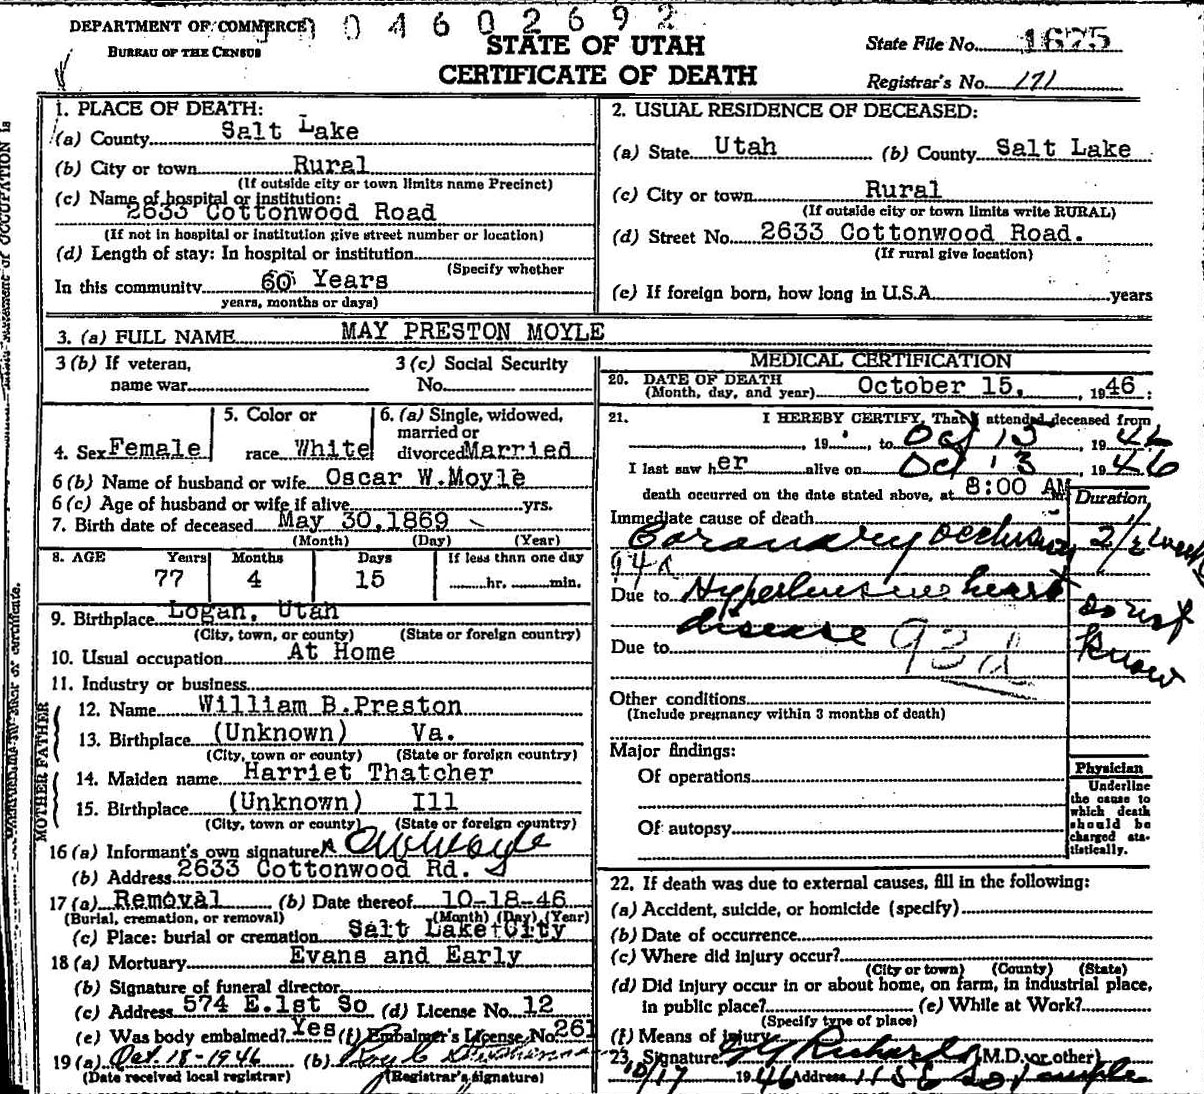 DEPARTMENT OF COMMERCE
BUREAU OF THE CENSUS
0 4 6 0 2 6 9 2
STATE OF UTAH
CERTIFICATE OF DEATH
State File No. 1675
Registrar's No. 171
1. PLACE OF DEATH:
(a) County Salt Lake
(b) City or town Rural
(If outside city or town limits name Precinct)
(c) Name of hospital or institution:
2633 Cottonwood Road
(If not in hospital or institution give street number or location)
(d) Length of stay: In hospital or institution
(Specify whether
In this community 60 Years
years, months or days)
2. USUAL RESIDENCE OF DECEASED:
(a) State Utah (b) County Salt Lake
(c) City or town Rural
(If outside city or town limits write RURAL)
(d) Street No. 2633 Cottonwood Road.
(If rural give location)
(e) If foreign born, how long in U.S.A. years
3. (a) FULL NAME MAY PRESTON MOYLE
3 (b) If veteran,
name war
3 (c) Social Security
No.
4. Sex Female
5. Color or
race White
6. (a) Single, widowed,
married or
divorced Married
6 (b) Name of husband or wife Oscar W.Moyle
6 (c) Age of husband or wife if alive yrs.
7. Birth date of deceased May 30,1869
(Month) (Day) (Year)
8. AGE Years Months Days If less than one day
77 4 15 hr. min.
9. Birthplace Logan, Utah
(City, town, or county) (State or foreign country)
10. Usual occupation At Home
11. Industry or business
MOTHER FATHER
12. Name William B.Preston
13. Birthplace (Unknown) Va.
(City, town or county) (State or foreign country)
14. Maiden name Harriet Thatcher
15. Birthplace (Unknown) Ill
(City, town or county) (State or foreign country)
16 (a) Informant's own signature OWMoyle
(b) Address 2633 Cottonwood Rd.
17 (a) Removal (b) Date thereof 10-18-46
(Burial, cremation, or removal) (Month) (Day) (Year)
(c) Place: burial or cremation Salt Lake City
18 (a) Mortuary Evans and Early
(b) Signature of funeral director
(c) Address 574 E.1st So (d) License No. 12
(e) Was body embalmed? Yes (f) Embalmer's License No. 261
19 (a) Oct. 18-1946 (b)
(Date received local registrar) (Registrar's signature)
MEDICAL CERTIFICATION
20. DATE OF DEATH
(Month, day, and year) October 15, 1946:
21. I HEREBY CERTIFY, That I attended deceased from
, 19 , to Oct 15, 1946
I last saw her alive on Oct 13, 1946
death occurred on the date stated above, at 8:00 AM
Duration
Immediate cause of death
Coronary occlusion 2 1/2 week
94a
Due to Hypertensive heart do not
disease know
Due to 93d
Other conditions
(Include pregnancy within 3 months of death)
Major findings:
Of operations
Of autopsy
Physician
Underline
the cause to
which death
should be
charged sta-
tistically.
22. If death was due to external causes, fill in the following:
(a) Accident, suicide, or homicide (specify)
(b) Date of occurrence
(c) Where did injury occur?
(City or town) (County) (State)
(d) Did injury occur in or about home, on farm, in industrial place,
in public place? (e) While at Work?
(Specify type of place)
(f) Means of injury
23. Signature Richards (M.D. or other)
10/17 1946 Address 115 E So Temple